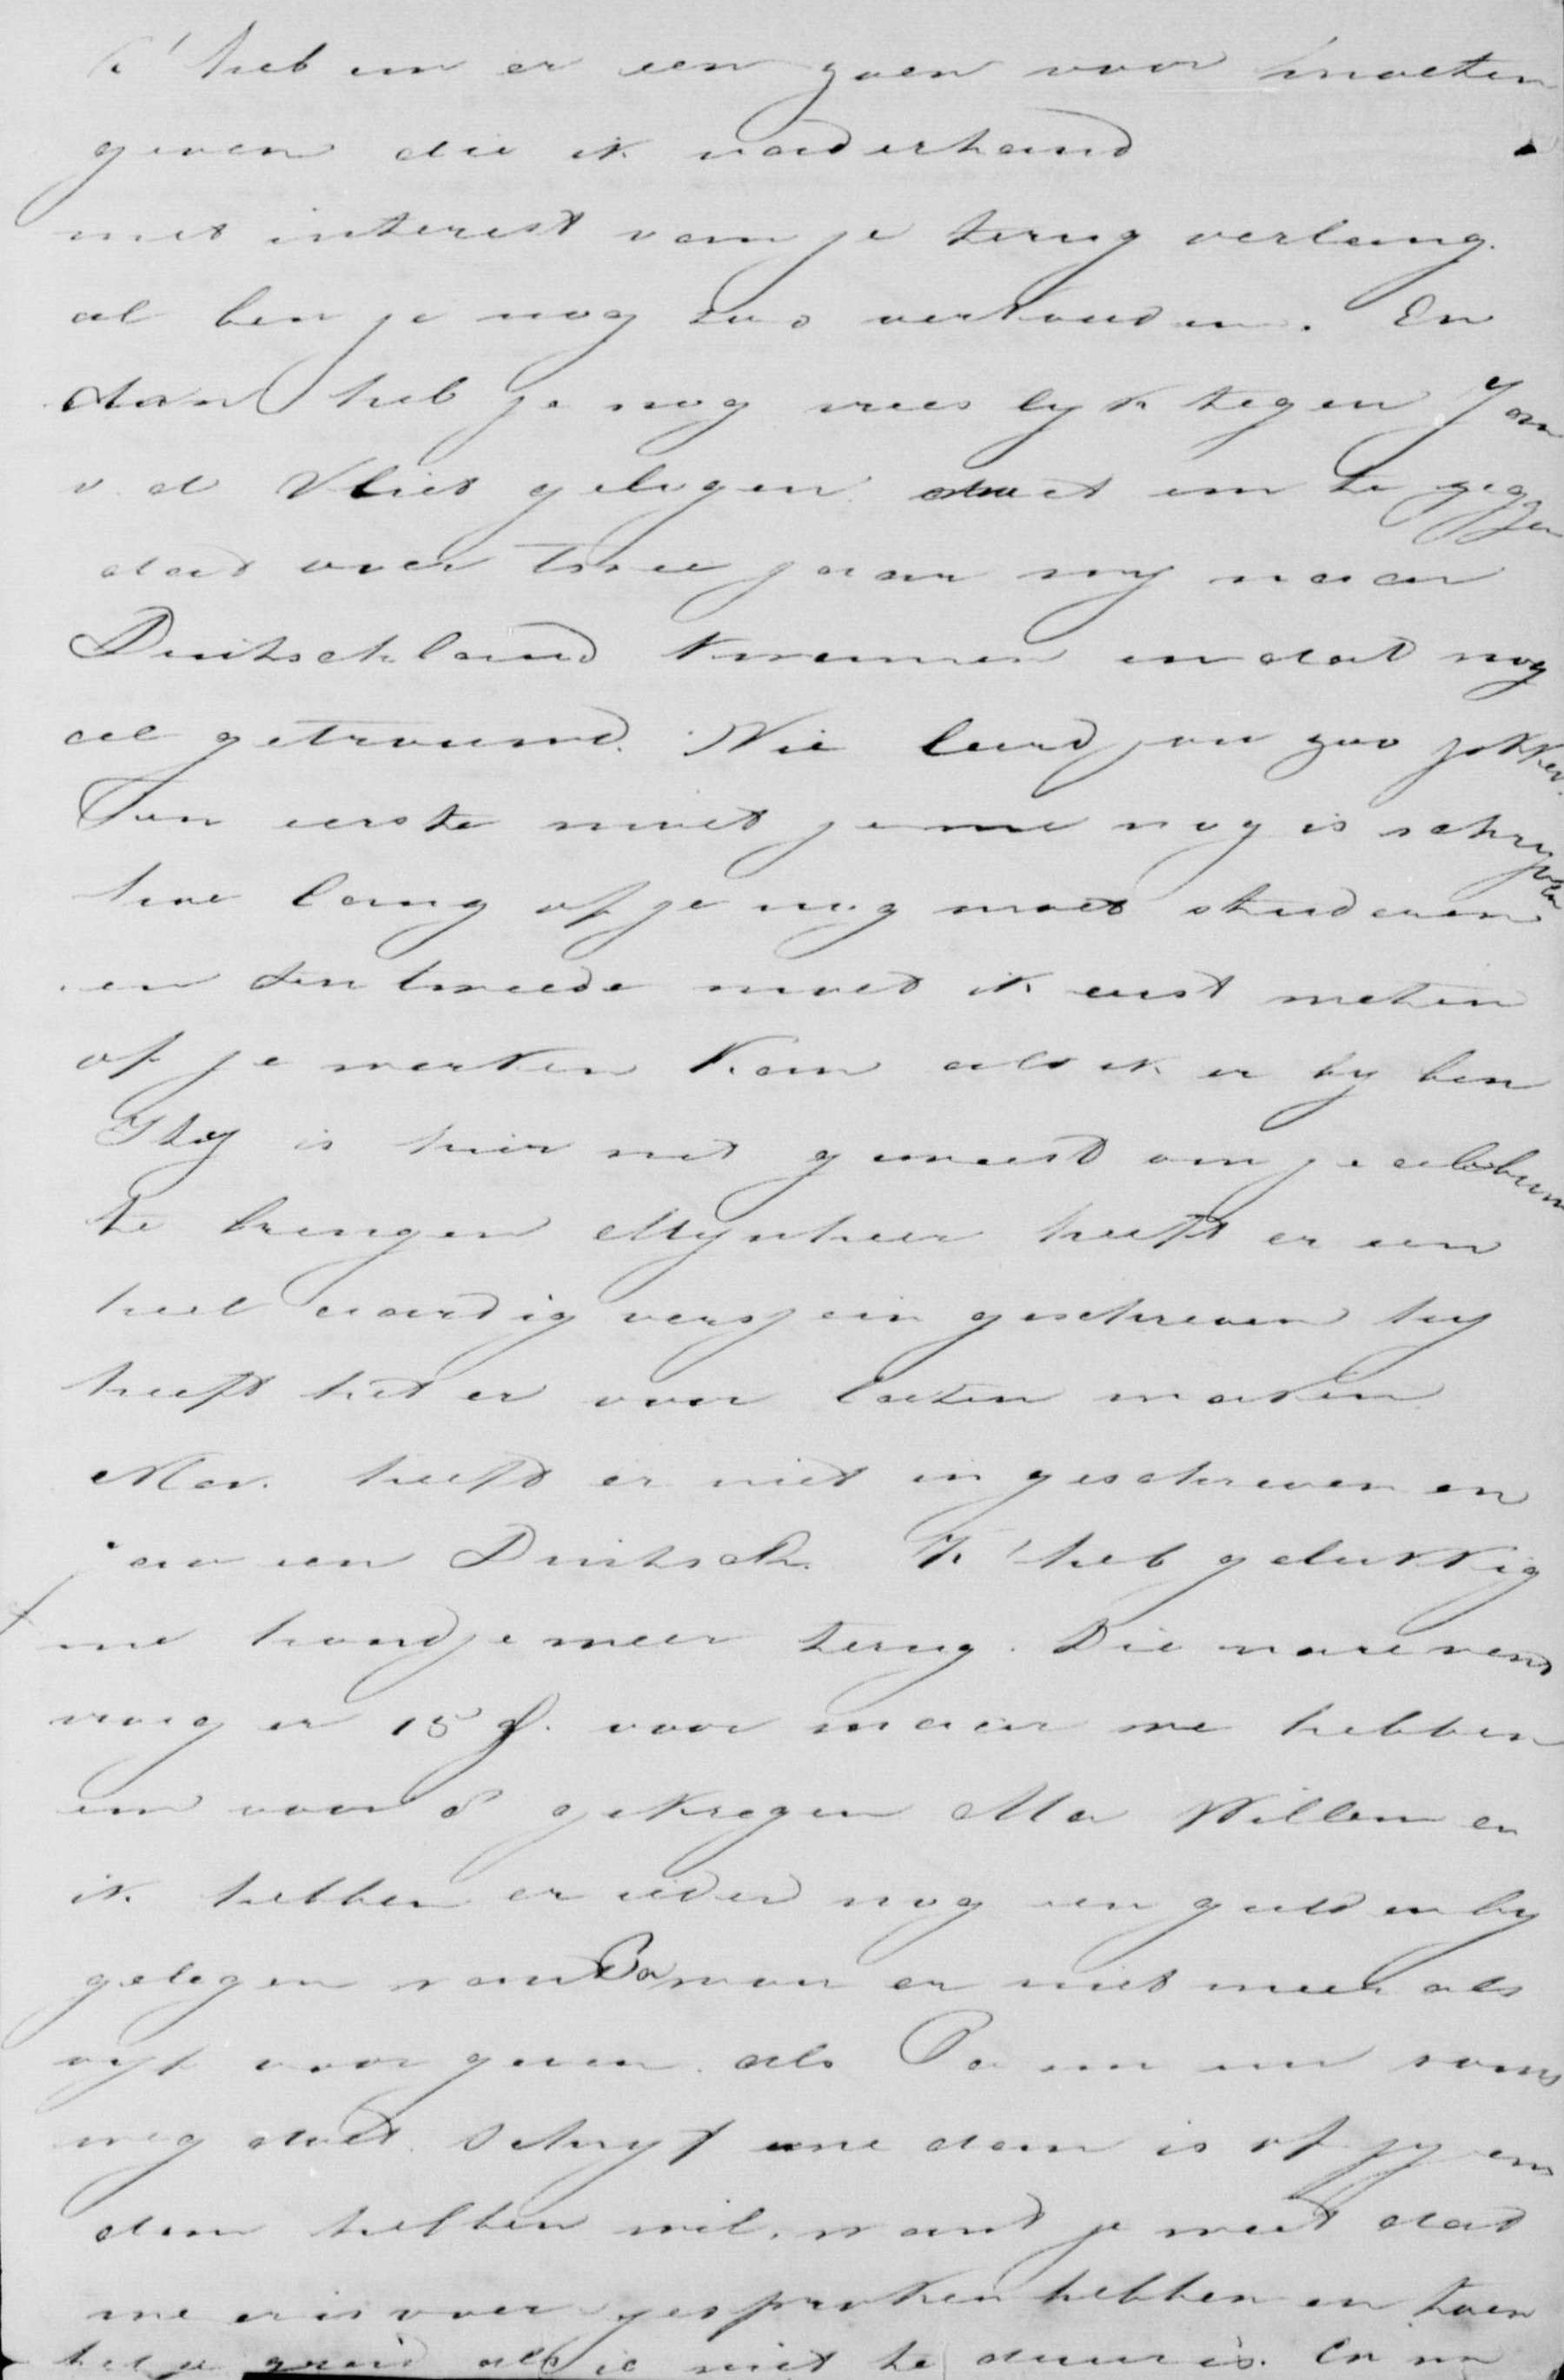 k' heb em er een zoen voor moeten
geven die ik naderhand
met interest van je terug verlang.
al ben je nog zoo verkouden. En
dan heb je nog vrees lyk tegen Jan
v. d Vliet gelogen. door em te zeggen
dat over twee jaar wy naar
Duitschland kwamen en dat nog
al getrouwd. Wie leerd jou zoo jokken.
Ten eerste moet je me nog is schryven
hoe lang of je nog moet studeren
en ten tweede moet ik eerst weten
of je werken kan als ik er by ben
is hier net geweest om je album
te brengen Mynheer heeft er een
heel aardig versje in geschreven hy
heeft het er voor laten maken
Mev. heeft er niet in geschreven en
een Duitsch. K' heb gelukkig
me hondje weer terug. Die nare vend
vroeg er 15 f. voor maar we hebben
em voor 8 gekregen Ma Willem en
ik hebben er ieder nog een gulden by
gelegen want Pa wou er niet meer als
vyf voor geven. als Pa em nu soms
weg doet. Schryf me dan is of jy em
dan hebben wil. want je weet dat
we er is over gesproken hebben en toen
heb je gezeid als ie niet te duur is. En nu